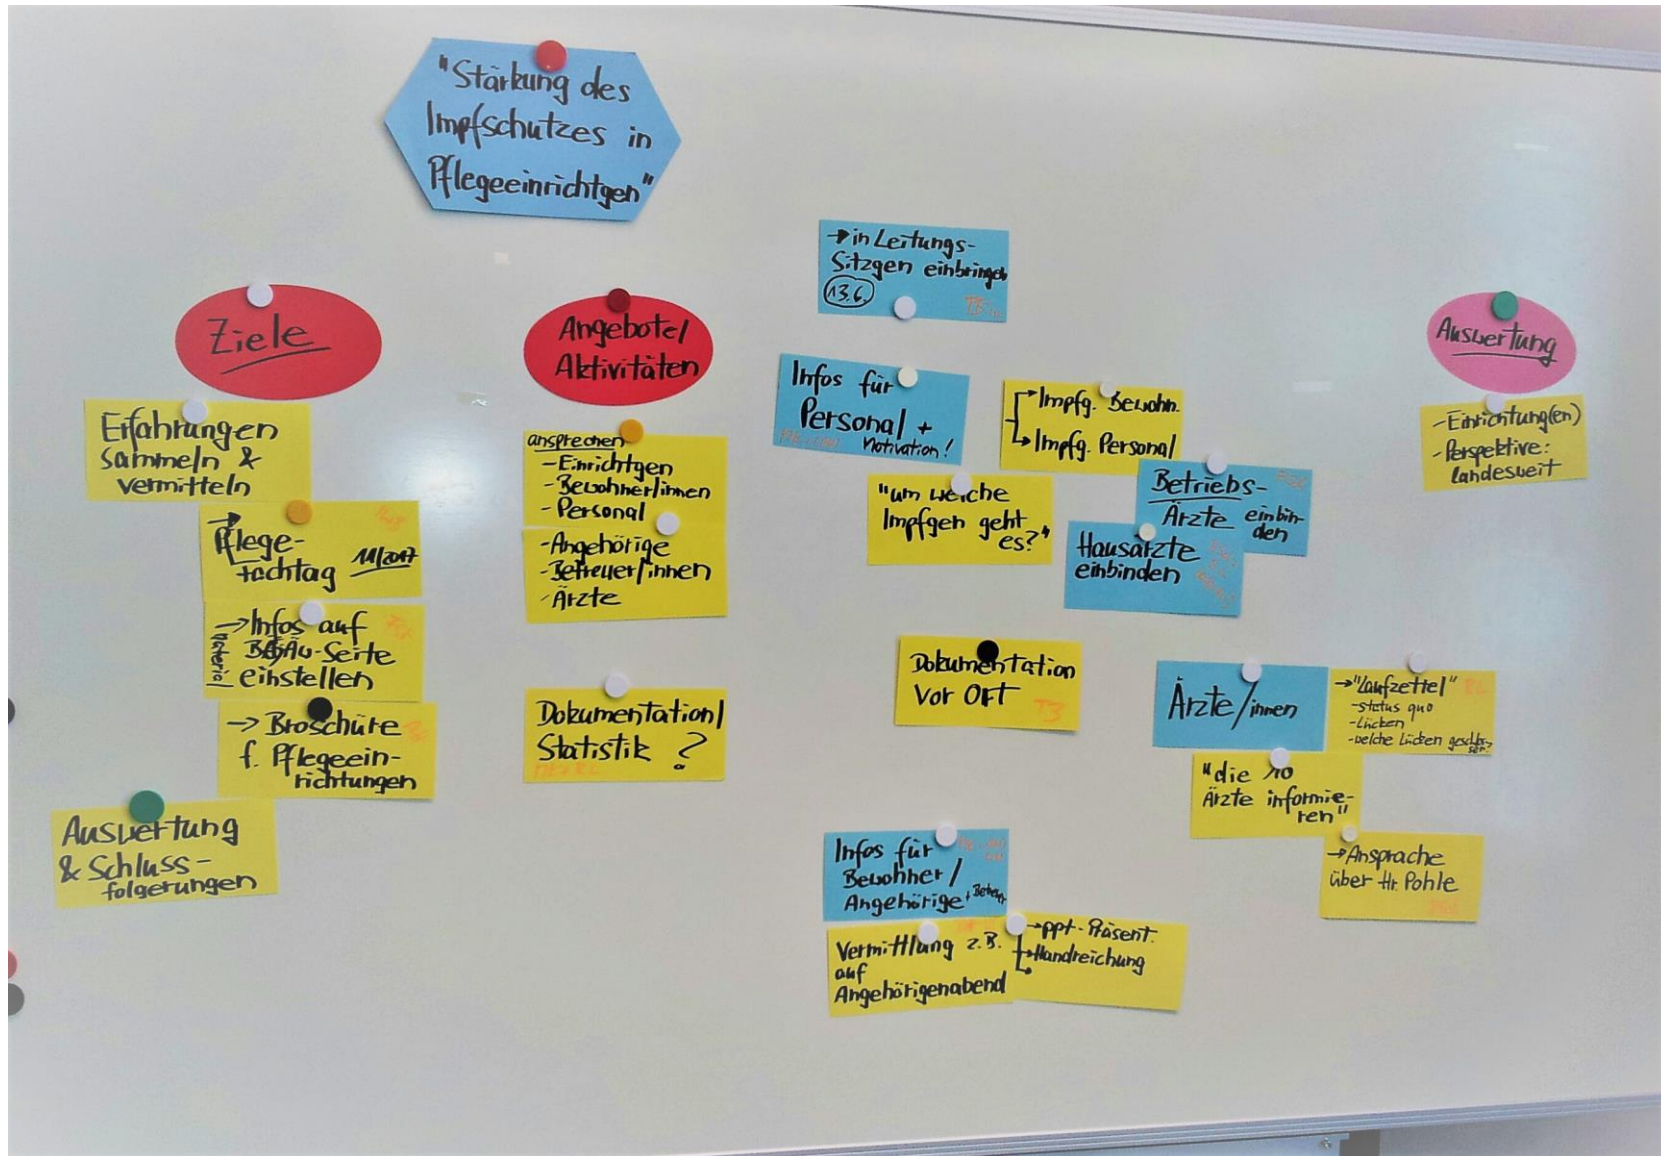 "Stärkung des
Impfschutzes in
Pflegeeinrichtgen"
Ziele
Erfahrungen
sammeln &
vermitteln
→ Pflege-
fachtag 11/2017
→ Infos auf
Seite
einstellen
→ Broschüre
f. Pflegeein-
richtungen
Auswertung
& Schluss-
folgerungen
Angebote/
Aktivitäten
ansprechen
- Einrichtgen
- Bewohner/innen
- Personal
- Angehörige
- Betreuer/innen
- Ärzte
Dokumentation/
Statistik ?
→ in Leitungs-
Sitzgen einbringen
13.6.
Infos für
Personal +
Motivation!
→ Impfg. Bewohn.
→ Impfg. Personal
"um welche
Impfgen geht
es?"
Betriebs-
Ärzte einbin-
den
Hausärzte
einbinden
Dokumentation
vor Ort
Ärzte/innen
→ "Laufzettel"
- status quo
- Lücken
- welche Lücken
"die 10
Ärzte informie-
ren"
→ Ansprache
über Hr. Pohle
Infos für
Bewohner/
Angehörige +
Vermittlung z.B.
auf
Angehörigenabend
→ ppt-Präsent.
→ Handreichung
Auswertung
- Einrichtung(en)
- Perspektive:
landesweit